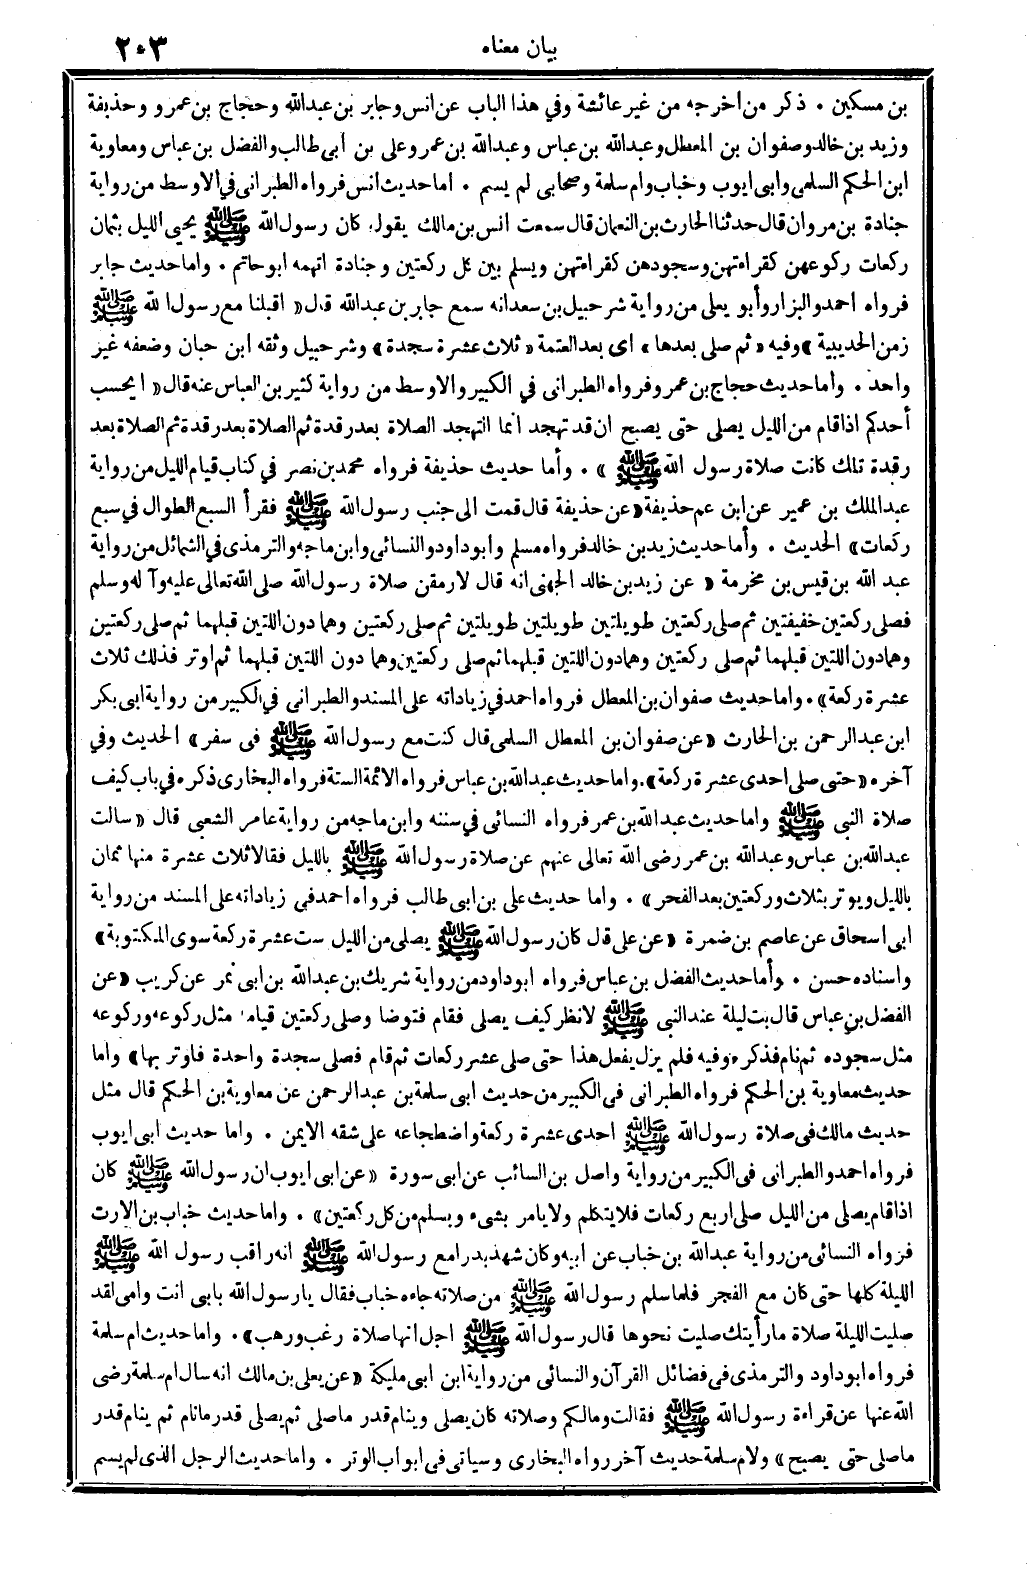 بيان معناه ٢٠٣
بن مسكين ٠ ذكر من أخرجه من غير عائشة وفي هذا الباب عن انس وجابر بن عبدالله وحجاج بن عمرو وحذيفة
وزيد بن خالد وصفوان بن المعطل وعبدالله بن عباس وعبدالله بن عمر وعلى بن أبى طالب والفضل بن عباس ومعاوية
ابن الحكم السلمى وابى ايوب وخباب وام سلمة وصحابى لم يسم ٠ اما حديث انس فرواه الطبرانى في الاوسط من رواية
جنادة بن مروان قال حدثنا الحارث بن النعمان قال سمعت انس بن مالك يقول كان رسول الله ﷺ يحيى الليل بثمان
ركعات ركوعهن كقراءتهن وسجودهن كقراءتهن ويسلم بين كل ركعتين وجنادة اتهمه ابو حاتم ٠ واما حديث جابر
فرواه احمد والبزار وأبو يعلى من رواية شرحبيل بن سعد انه سمع جابر بن عبدالله قال «اقبلنا مع رسول الله ﷺ
زمن الحديبية» وفيه «ثم صلى بعدها» اى بعد العتمة «ثلاث عشرة سجدة» وشرحبيل وثقه ابن حبان وضعفه غير
واحد ٠ وأما حديث حجاج بن عمرو فرواه الطبرانى في الكبير والاوسط من رواية كثير بن العباس عنه قال «ايحسب
أحدكم اذا قام من الليل يصلى حتى يصبح ان قد تهجد انما التهجد الصلاة بعد رقدة ثم الصلاة بعد رقدة ثم الصلاة بعد
رقدة تلك كانت صلاة رسول الله ﷺ» ٠ وأما حديث حذيفة فرواه محمد بن نصر في كتاب قيام الليل من رواية
عبد الملك بن عمير عن ابن عم حذيفة «عن حذيفة قال قمت الى جنب رسول الله ﷺ فقرأ السبع الطوال في سبع
ركعات» الحديث ٠ وأما حديث زيد بن خالد فرواه مسلم وابو داود والنسائى وابن ماجه والترمذى في الشمائل من رواية
عبد الله بن قيس بن مخرمة «عن زيد بن خالد الجهنى انه قال لارمقن صلاة رسول الله صلى الله تعالى عليه وآله وسلم
فصلى ركعتين خفيفتين ثم صلى ركعتين طويلتين طويلتين طويلتين ثم صلى ركعتين وهما دون اللتين قبلهما ثم صلى ركعتين
وهما دون اللتين قبلهما ثم صلى ركعتين وهما دون اللتين قبلهما ثم صلى ركعتين وهما دون اللتين قبلهما ثم اوتر فذلك ثلاث
عشرة ركعة» ٠ واما حديث صفوان بن المعطل فرواه احمد في زياداته على المسند والطبرانى في الكبير من رواية ابى بكر
ابن عبد الرحمن بن الحارث «عن صفوان بن المعطل السلمى قال كنت مع رسول الله ﷺ فى سفر» الحديث وفي
آخره «حتى صلى احدى عشرة ركعة» ٠ واما حديث عبدالله بن عباس فرواه الائمة الستة فرواه البخارى ذكره في باب كيف
صلاة النبى ﷺ واما حديث عبدالله بن عمر فرواه النسائى في سننه وابن ماجه من رواية عامر الشعبى قال «سالت
عبدالله بن عباس وعبدالله بن عمر رضى الله تعالى عنهم عن صلاة رسول الله ﷺ بالليل فقالا ثلاث عشرة منها ثمان
بالليل ويوتر بثلاث وركعتين بعد الفجر» ٠ واما حديث على بن ابى طالب فرواه احمد في زياداته على المسند من رواية
ابى اسحاق عن عاصم بن ضمرة «عن على قال كان رسول الله ﷺ يصلى من الليل ست عشرة ركعة سوى المكتوبة»
واسناده حسن ٠ وأما حديث الفضل بن عباس فرواه ابو داود من رواية شريك بن عبدالله بن ابى نمر عن كريب «عن
الفضل بن عباس قال بت ليلة عند النبى ﷺ لانظر كيف يصلى فقام فتوضا وصلى ركعتين قيامه مثل ركوعه وركوعه
مثل سجوده ثم نام فذكره وفيه فلم يزل يفعل هذا حتى صلى عشر ركعات ثم قام فصلى سجدة واحدة فاوتر بها» واما
حديث معاوية بن الحكم فرواه الطبرانى فى الكبير من حديث ابى سلمة بن عبد الرحمن عن معاوية بن الحكم قال مثل
حديث مالك فى صلاة رسول الله ﷺ احدى عشرة ركعة واضطجاعه على شقه الايمن ٠ واما حديث ابى ايوب
فرواه احمد والطبرانى فى الكبير من رواية واصل بن السائب عن ابى سورة «عن ابى ايوب ان رسول الله ﷺ كان
اذا قام يصلى من الليل صلى اربع ركعات فلا يتكلم ولا يامر بشىء ويسلم من كل ركعتين» ٠ واما حديث خباب بن الارت
فرواه النسائى من رواية عبدالله بن خباب عن ابيه وكان شهد بدرا مع رسول الله ﷺ انه راقب رسول الله ﷺ
الليلة كلها حتى كان مع الفجر فلما سلم رسول الله ﷺ من صلاته جاءه خباب فقال يا رسول الله بابى انت وامى لقد
صليت الليلة صلاة ما رأيتك صليت نحوها قال رسول الله ﷺ اجل انها صلاة رغب ورهب» ٠ واما حديث ام سلمة
فرواه ابو داود والترمذى فى فضائل القرآن والنسائى من رواية ابن ابى مليكة «عن يعلى بن مالك انه سال ام سلمة رضى
الله عنها عن قراءة رسول الله ﷺ فقالت ومالكم وصلاته كان يصلى وينام قدر ما صلى ثم يصلى قدر ما نام ثم ينام قدر
ما صلى حتى يصبح» ولام سلمة حديث آخر رواه البخارى وسياتى فى ابواب الوتر ٠ واما حديث الرجل الذى لم يسم